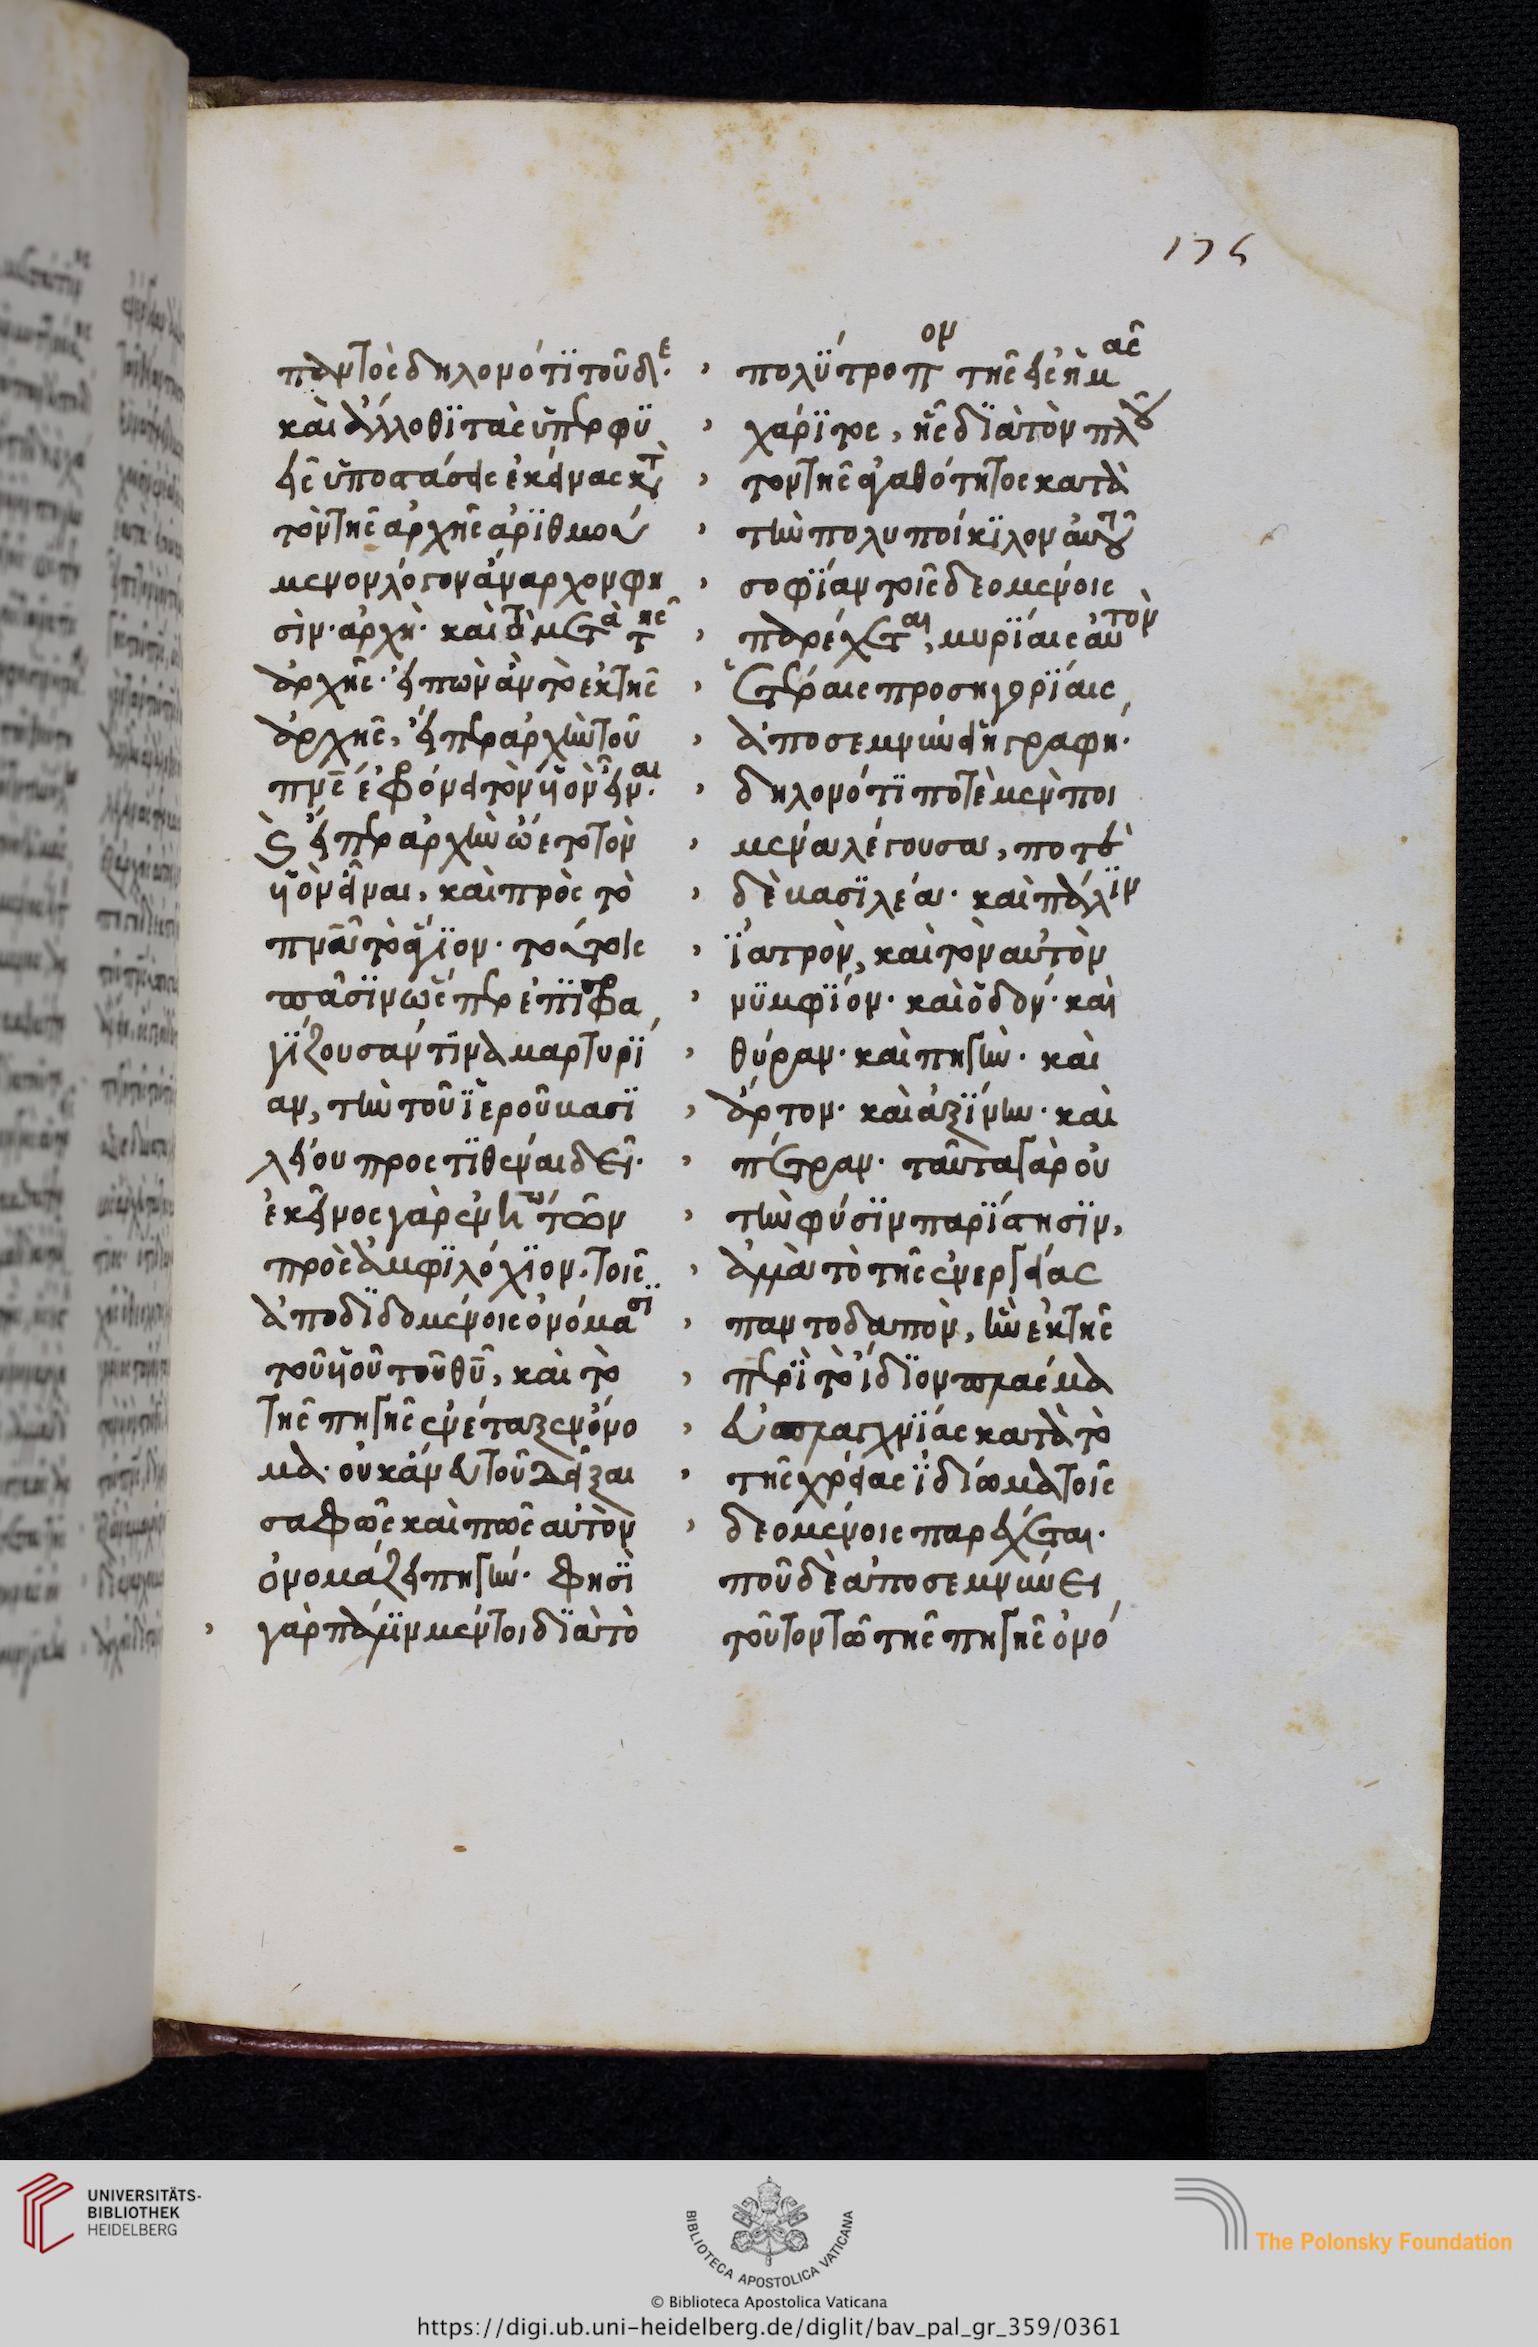 παντὸς δηλονότι τοῦ δὲ·
καὶ ἄλλοθι τὰς ὑπὲρ φύ
σεῖς ὑποστάσεις ἐκείνας κατὰ
τὸν τῆς ἀρχῆς ἀριθμού
μενον λόγον ἄναρχον φη
σὶν· ἀρχὴ· καὶ τὰ μετὰ τῆς
ἀρχῆς· εἰπὼν ἂν τὸ ἐκ τῆς
ἀρχῆς, εἴπερ ἀρχὴν τοῦ
πνς ἐφρόνει τὸν υἱὸν εἶναι·
εἴπερ ἀρχὴν ὤετο τὸν
υἱὸν εἶναι, καὶ πρὸς τὸ
πνα τὸ ἅγιον· τούτοις
πᾶσιν ὥσπερ ἐπισφρα
γίζουσαν τινὰ μαρτυρί
αν, τὴν τοῦ ἱεροῦ βασι
λείου προστιθέναι δεῖ·
ἐκεῖνος γὰρ ἐν τῶν
πρὸς ἀμφιλόχιον, τοῖς
ἀποδιδομένοις ὀνόμασι
τοῦ υἱοῦ τοῦ θυ, καὶ τὸ
τῆς πηγῆς ἐνέταξεν ὄνο
μα· οὐκ ἂν εὖ τοῦ δεῖξαι
σαφῶς καὶ πῶς αὐτὸν
ὀνομάζει πηγήν· φησὶ
γὰρ πάλιν μέντοι διὰ τὸ
πολύτροπον τῆς εἰς ἡμᾶς
χάριτος, ἧς διὰ τὸν πλοῦ
τον τῆς ἀγαθότητος κατὰ
τὴν πολυποίκιλον αὐτοῦ
σοφίαν τοῖς δεομένοις
παρέχεται, μυρίαις αὐτὸν
ἑτέραις προσηγορίαις
ἀποσεμνύνει ἡ γραφή·
δηλονότι ποτὲ μὲν ποι
μένα λέγουσα, ποτὲ
δὲ βασιλέα· καὶ πάλιν
ἰατρὸν, καὶ τὸν αὐτὸν
νυμφίον· καὶ ὁδόν· καὶ
θύραν· καὶ πηγὴν· καὶ
ἄρτον· καὶ ἀξίνην· καὶ
πέτραν· ταῦτα γὰρ οὐ
τὴν φύσιν παρίστησιν,
ἀλλὰ τὸ τῆς ἐνεργείας
παντοδαπὸν, ἣν ἐκ τῆς
περὶ τὸ ἴδιον πλάσμα
εὐσπλαγχνίας κατὰ τὸ
τῆς χρείας ἰδίωμα τοῖς
δεομένοις παρέχεται·
ποῦ δὲ ἀποσεμνύνει
τοῦτον τῶ τῆς πηγῆς ὀνό
UNIVERSITÄTS-
BIBLIOTHEK
HEIDELBERG
BIBLIOTECA APOSTOLICA VATICANA
The Polonsky Foundation
© Biblioteca Apostolica Vaticana
https://digi.ub.uni-heidelberg.de/diglit/bav_pal_gr_359/0361